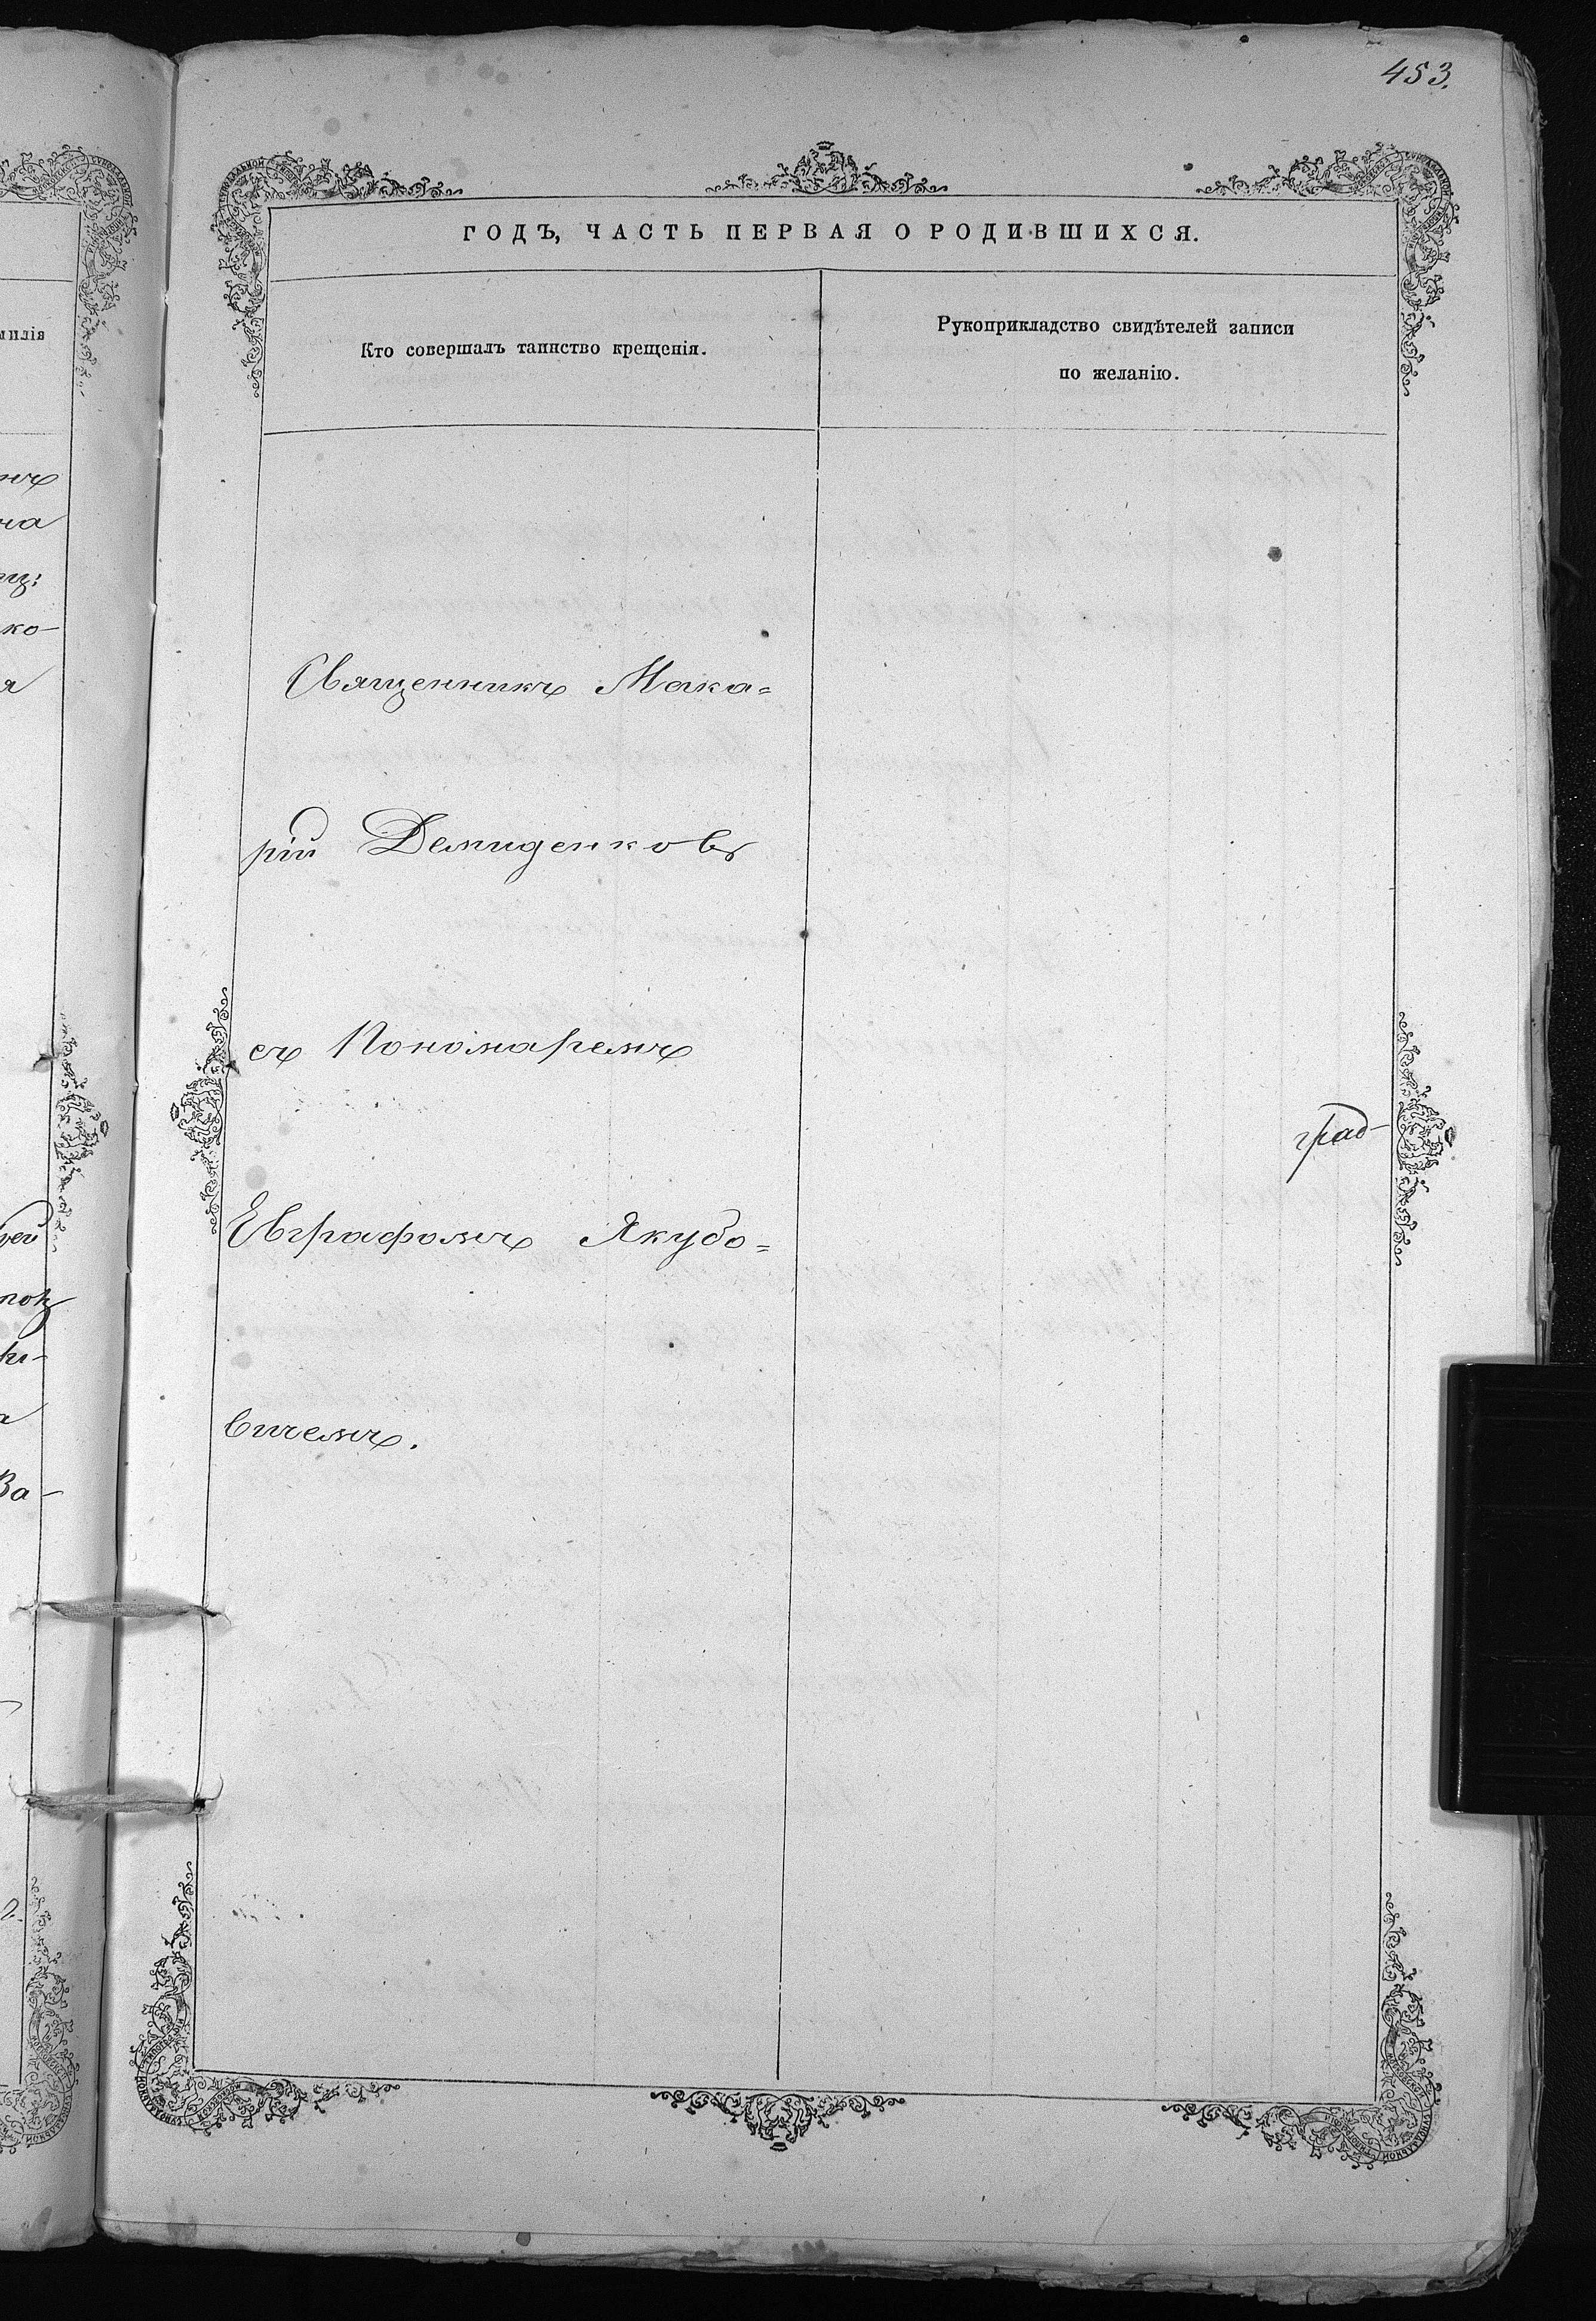 453.
ГОДЪ, ЧАСТЬ ПЕРВАЯ О РОДИВШИХСЯ.
Кто совершалъ таинство крещенія.
Рукоприкладство свидѣтелей записи
по желанію.
Священникъ Мака=
рій Демиденковъ
съ Пономаремъ
Евграфомъ Якубо=
вичемъ.
град-
милія
на
ко-
я
Ва-